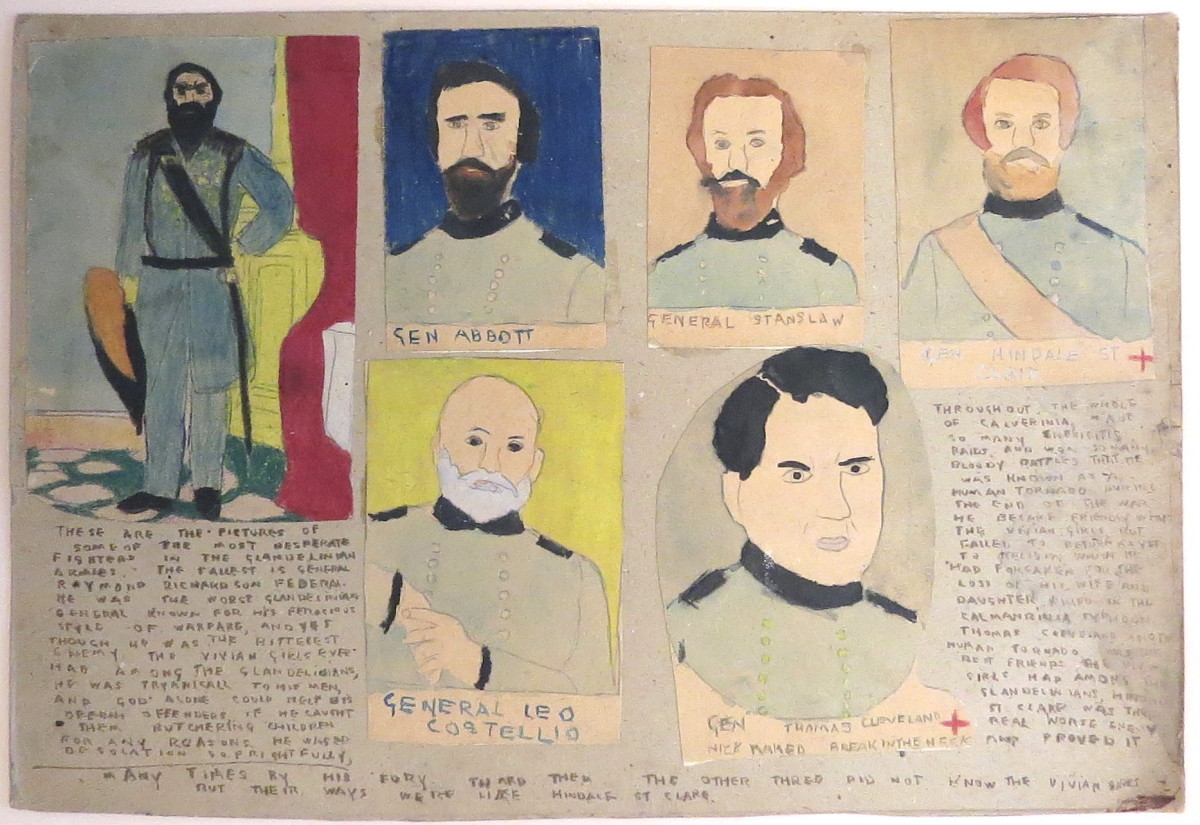 GEN ABBOTT
GENERAL STANSLAW
GEN HINDALE ST
CLAIR
GENERAL LEO
COSTELLIO
GEN THOMAS CLEVELAND
NICK NAMED BREAK IN THE NECK
THESE ARE THE PICTURES OF
SOME OF THE MOST DESPERATE
FIGHTERS IN THE GLANDELINIAN
ARMIES. THE TALLEST IS GENERAL
RAYMOND RICHARDSON FEDERAL.
HE WAS THE WORST GLANDELINIAN
GENERAL KNOWN FOR HIS FEROCIOUS
STYLE OF WARFARE, AND YET
THOUGH HE WAS THE BITTEREST
ENEMY THE VIVIAN GIRLS EVER
HAD AMONG THE GLANDELINIANS,
HE WAS TRYANICALL TO HIS MEN,
AND GOD ALONE COULD HELP HIS
OFFENDERS IF HE CAUGHT
THEM BUTCHERING CHILDREN
FOR ANY REASONS. HE WAGED
DESOLATION SO FRIGHTFULLY,
THROUGHOUT THE WHOLE
OF CALVERINIA, MADE
SO MANY
RAIDS, AND WON SO MANY
BLOODY BATTLES THAT HE
WAS KNOWN AS THE
HUMAN TORNADO. DURING
THE END OF THE WAR
HE BECAME FRIENDLY WITH
THE VIVIAN GIRLS BUT
FAILED TO RETURN EVER
TO RELIGION WHICH HE
HAD FORSAKEN THE
LOSS OF HIS WIFE AND
DAUGHTER KILLED IN THE
CALMANRINIA TYPHOON.
THOMAS CLEVELAND
HUMAN TORNADO WAS THE
BEST FRIENDS THE
GIRLS HAD AMONG
GLANDELINIANS,
ST CLARE WAS THE
REAL WORSE ENEMY
AND PROVED IT
MANY TIMES BY HIS FURY TWARD THEM THE OTHER THREE DID NOT KNOW THE VIVIAN GIRLS
BUT THEIR WAYS WERE LIKE HINDALE ST CLARE.